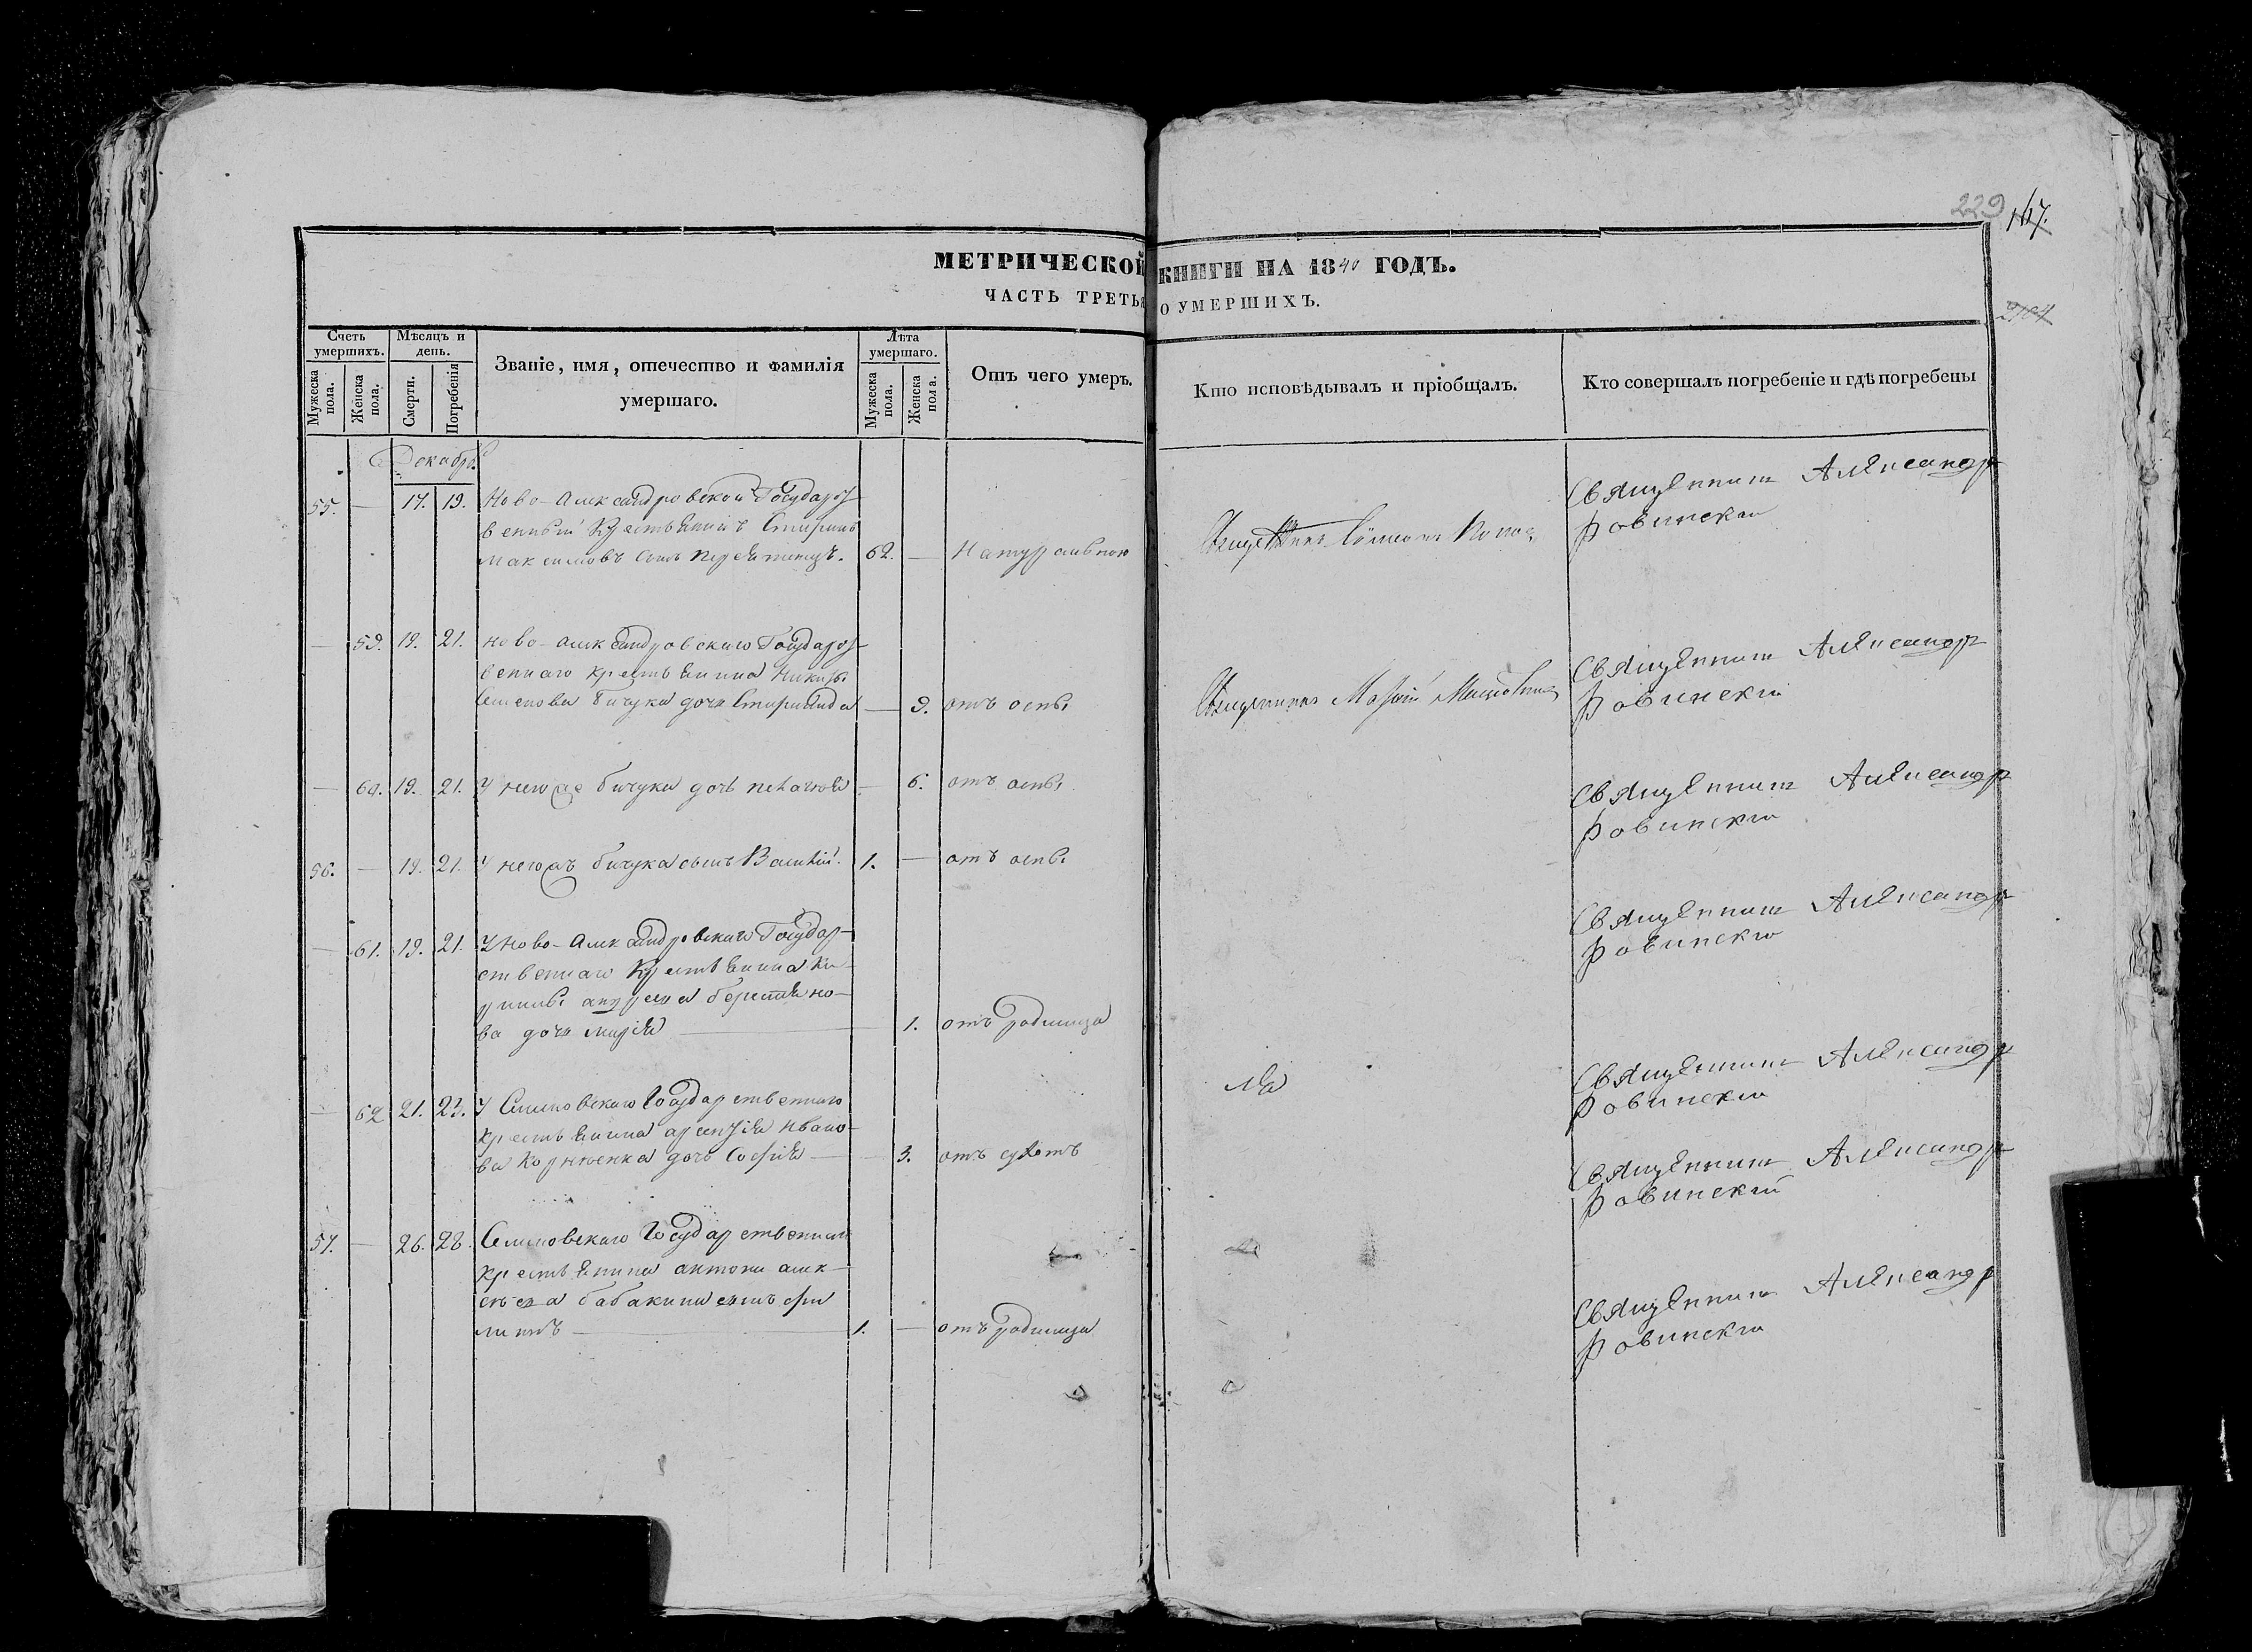 229 167.
2104
МЕТРИЧЕСКОЙ КНИГИ НА 1840 ГОДЪ.
ЧАСТЬ ТРЕТЬЯ О УМЕРШИХЪ.
Счетъ умершихъ.
Мужеска пола.
Женска пола.
Мѣсяцъ и день.
Смерти.
Погребенія
Званіе, имя, отечество и фамилія
умершаго.
Лѣта умершаго.
Мужеска пола.
Женска пола.
Отъ чего умеръ.
Кто исповѣдывалъ и пріобщалъ.
Кто совершалъ погребеніе и гдѣ погребены
Декабрь
55. — 17. 19. Ново-Александровской Государст
венный крестьянинъ Спиридонъ
Максимовъ сынъ 62. — Натуральною
Священникъ Симеонъ Попов
Священник Александр
Ровинский
— 59. 19. 21. Ново-Александровскаго Государст
веннаго крестьянина Никиты
Семенова Бичука дочь — 9. отъ оспы
Священникъ
Священник Александр
Ровинский
— 60. 19. 21. У него же бичука дочь пелагия — 6. отъ оспы
Священник Александр
Ровинский
56. — 19. 21. У него жъ бичука сынъ Василій. 1. — отъ оспы
Священник Александр
Ровинский
— 61. 19. 21. У Ново-Александровскаго Государ-
ственнаго крестьянина Ки-
рилы андреева
ва дочь марія — 1. отъ родимца
Священник Александр
Ровинский
— 62 21. 23. У Семеновскаго Государственнаго
крестьянина арсенія Ивано-
ва Корниенка дочь Софія — 3. отъ сухотъ
Священник Александр
Ровинский
57. — 26. 28. Семеновскаго Государственнаго
крестьянина антона алек-
сѣева бабакина сынъ фи
липъ 1. — отъ родимца
Священник Александр
Ровинский